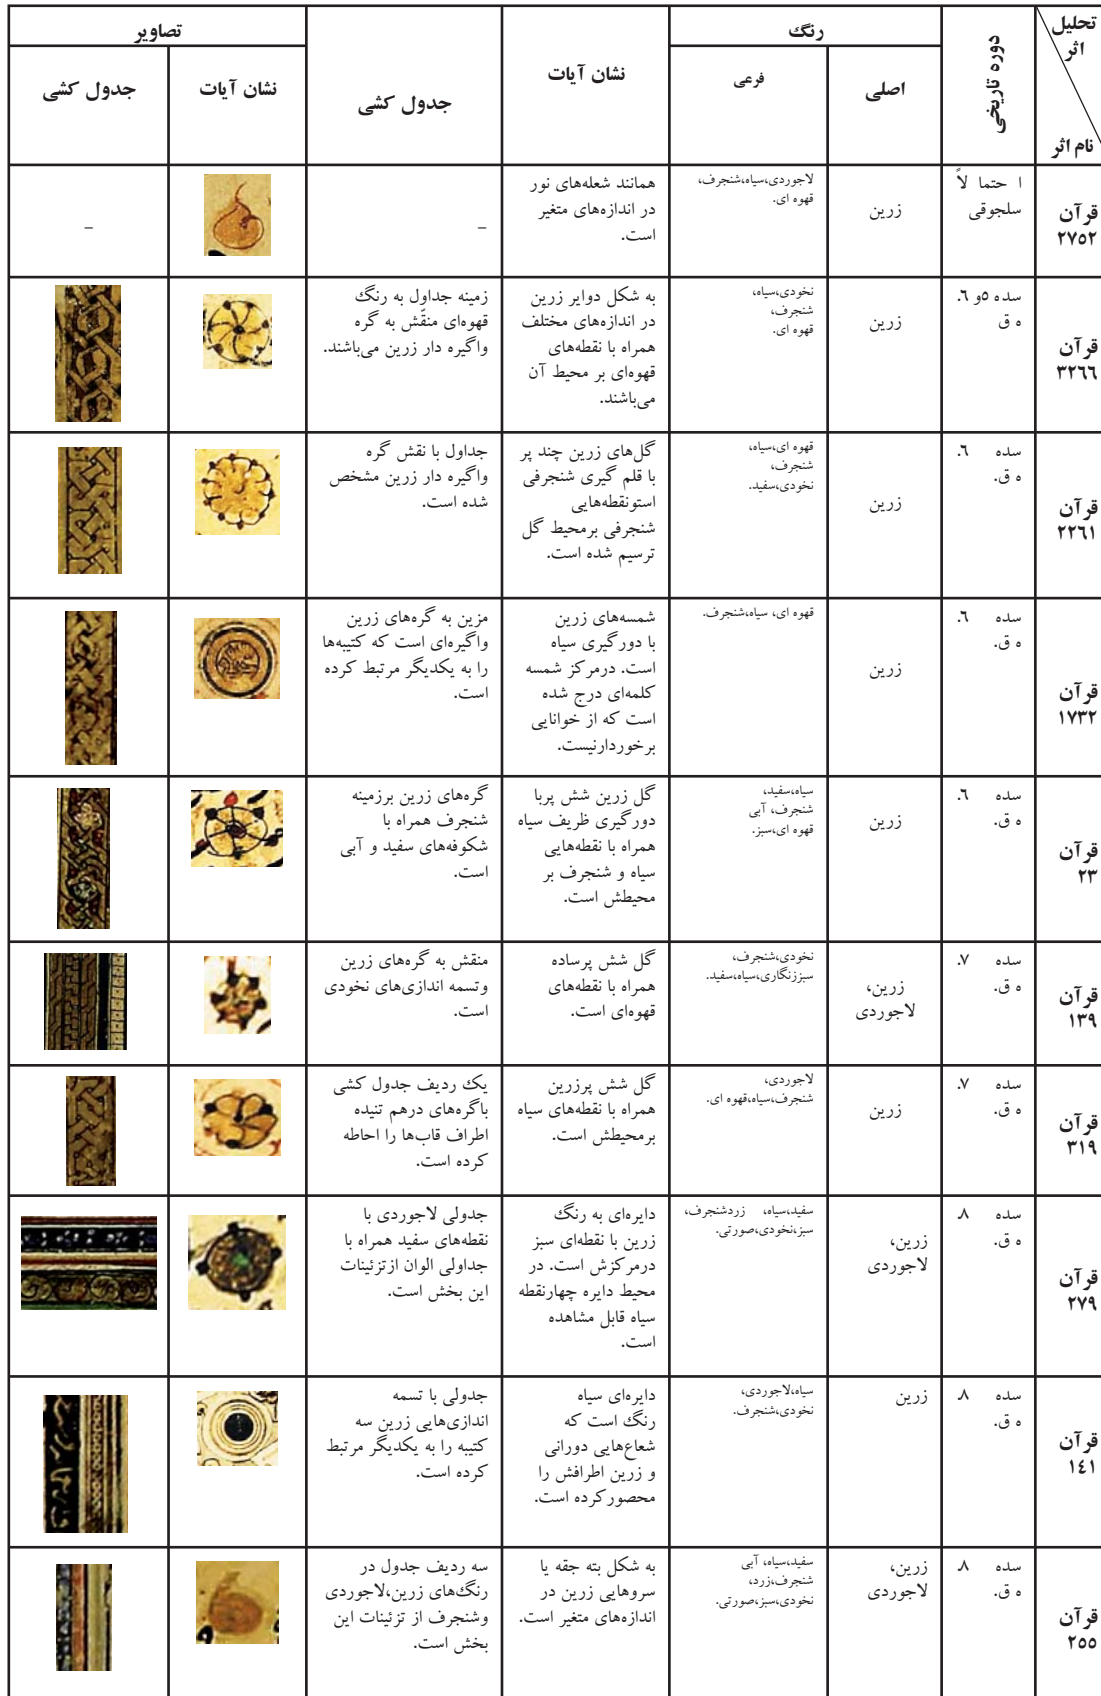 تحلیل اثر
نام اثر
دوره تاریخی
رنگ
اصلی
فرعی
نشان آیات
جدول کشی
تصاویر
نشان آیات
جدول کشی
قرآن
٢٧٥٢
ا حتما لاً
سلجوقی
زرین
لاجوردی،سیاه،شنجرف،
قهوه ای.
همانند شعله‌های نور
در اندازه‌های متغیر
است.
–
–
قرآن
٣٢٦٦
سده ٥و ٦.
ه ق
زرین
نخودی،سیاه،
شنجرف،
قهوه ای.
به شکل دوایر زرین
در اندازه‌های مختلف
همراه با نقطه‌های
قهوه‌ای بر محیط آن
می‌باشند.
زمینه جداول به رنگ
قهوه‌ای منقّش به گره
واگیره دار زرین می‌باشند.
قرآن
٢٢٦١
سده ٦.
ه ق.
زرین
قهوه ای،سیاه،
شنجرف،
نخودی،سفید.
گل‌های زرین چند پر
با قلم گیری شنجرفی
استونقطه‌هایی
شنجرفی برمحیط گل
ترسیم شده است.
جداول با نقش گره
واگیره دار زرین مشخص
شده است.
قرآن
١٧٣٢
سده ٦.
ه ق.
زرین
قهوه ای، سیاه،شنجرف.
شمسه‌های زرین
با دورگیری سیاه
است. درمرکز شمسه
کلمه‌ای درج شده
است که از خوانایی
برخوردارنیست.
مزین به گره‌های زرین
واگیره‌ای است که کتیبه‌ها
را به یکدیگر مرتبط کرده
است.
قرآن
٢٣
سده ٦.
ه ق.
زرین
سیاه،سفید،
شنجرف، آبی
قهوه ای،سبز.
گل زرین شش پربا
دورگیری ظریف سیاه
همراه با نقطه‌هایی
سیاه و شنجرف بر
محیطش است.
گره‌های زرین برزمینه
شنجرف همراه با
شکوفه‌های سفید و آبی
است.
قرآن
١٣٩
سده ٧.
ه ق.
زرین،
لاجوردی
نخودی،شنجرف،
سبززنگاری،سیاه،سفید.
گل شش پرساده
همراه با نقطه‌های
قهوه‌ای است.
منقش به گره‌های زرین
وتسمه اندازی‌های نخودی
است.
قرآن
٣١٩
سده ٧.
ه ق.
زرین
لاجوردی،
شنجرف،سیاه،قهوه ای.
گل شش پرزرین
همراه با نقطه‌های سیاه
برمحیطش است.
یک ردیف جدول کشی
باگره‌های درهم تنیده
اطراف قاب‌ها را احاطه
کرده است.
قرآن
٢٧٩
سده ٨
ه ق.
زرین،
لاجوردی
سفید،سیاه، زردشنجرف،
سبز،نخودی،صورتی.
دایره‌ای به رنگ
زرین با نقطه‌ای سبز
درمرکزش است. در
محیط دایره چهارنقطه
سیاه قابل مشاهده
است.
جدولی لاجوردی با
نقطه‌های سفید همراه با
جداولی الوان ازتزئینات
این بخش است.
قرآن
١٤١
سده ٨
ه ق.
زرین
سیاه،لاجوردی،
نخودی،شنجرف.
دایره‌ای سیاه
رنگ است که
شعاع‌هایی دورانی
و زرین اطرافش را
محصورکرده است.
جدولی با تسمه
اندازی‌هایی زرین سه
کتیبه را به یکدیگر مرتبط
کرده است.
قرآن
٢٥٥
سده ٨
ه ق.
زرین،
لاجوردی
سفید،سیاه، آبی
شنجرف،زرد،
نخودی،سبز،صورتی.
به شکل بته جقه یا
سروهایی زرین در
اندازه‌های متغیر است.
سه ردیف جدول در
رنگ‌های زرین،لاجوردی
وشنجرف از تزئینات این
بخش است.